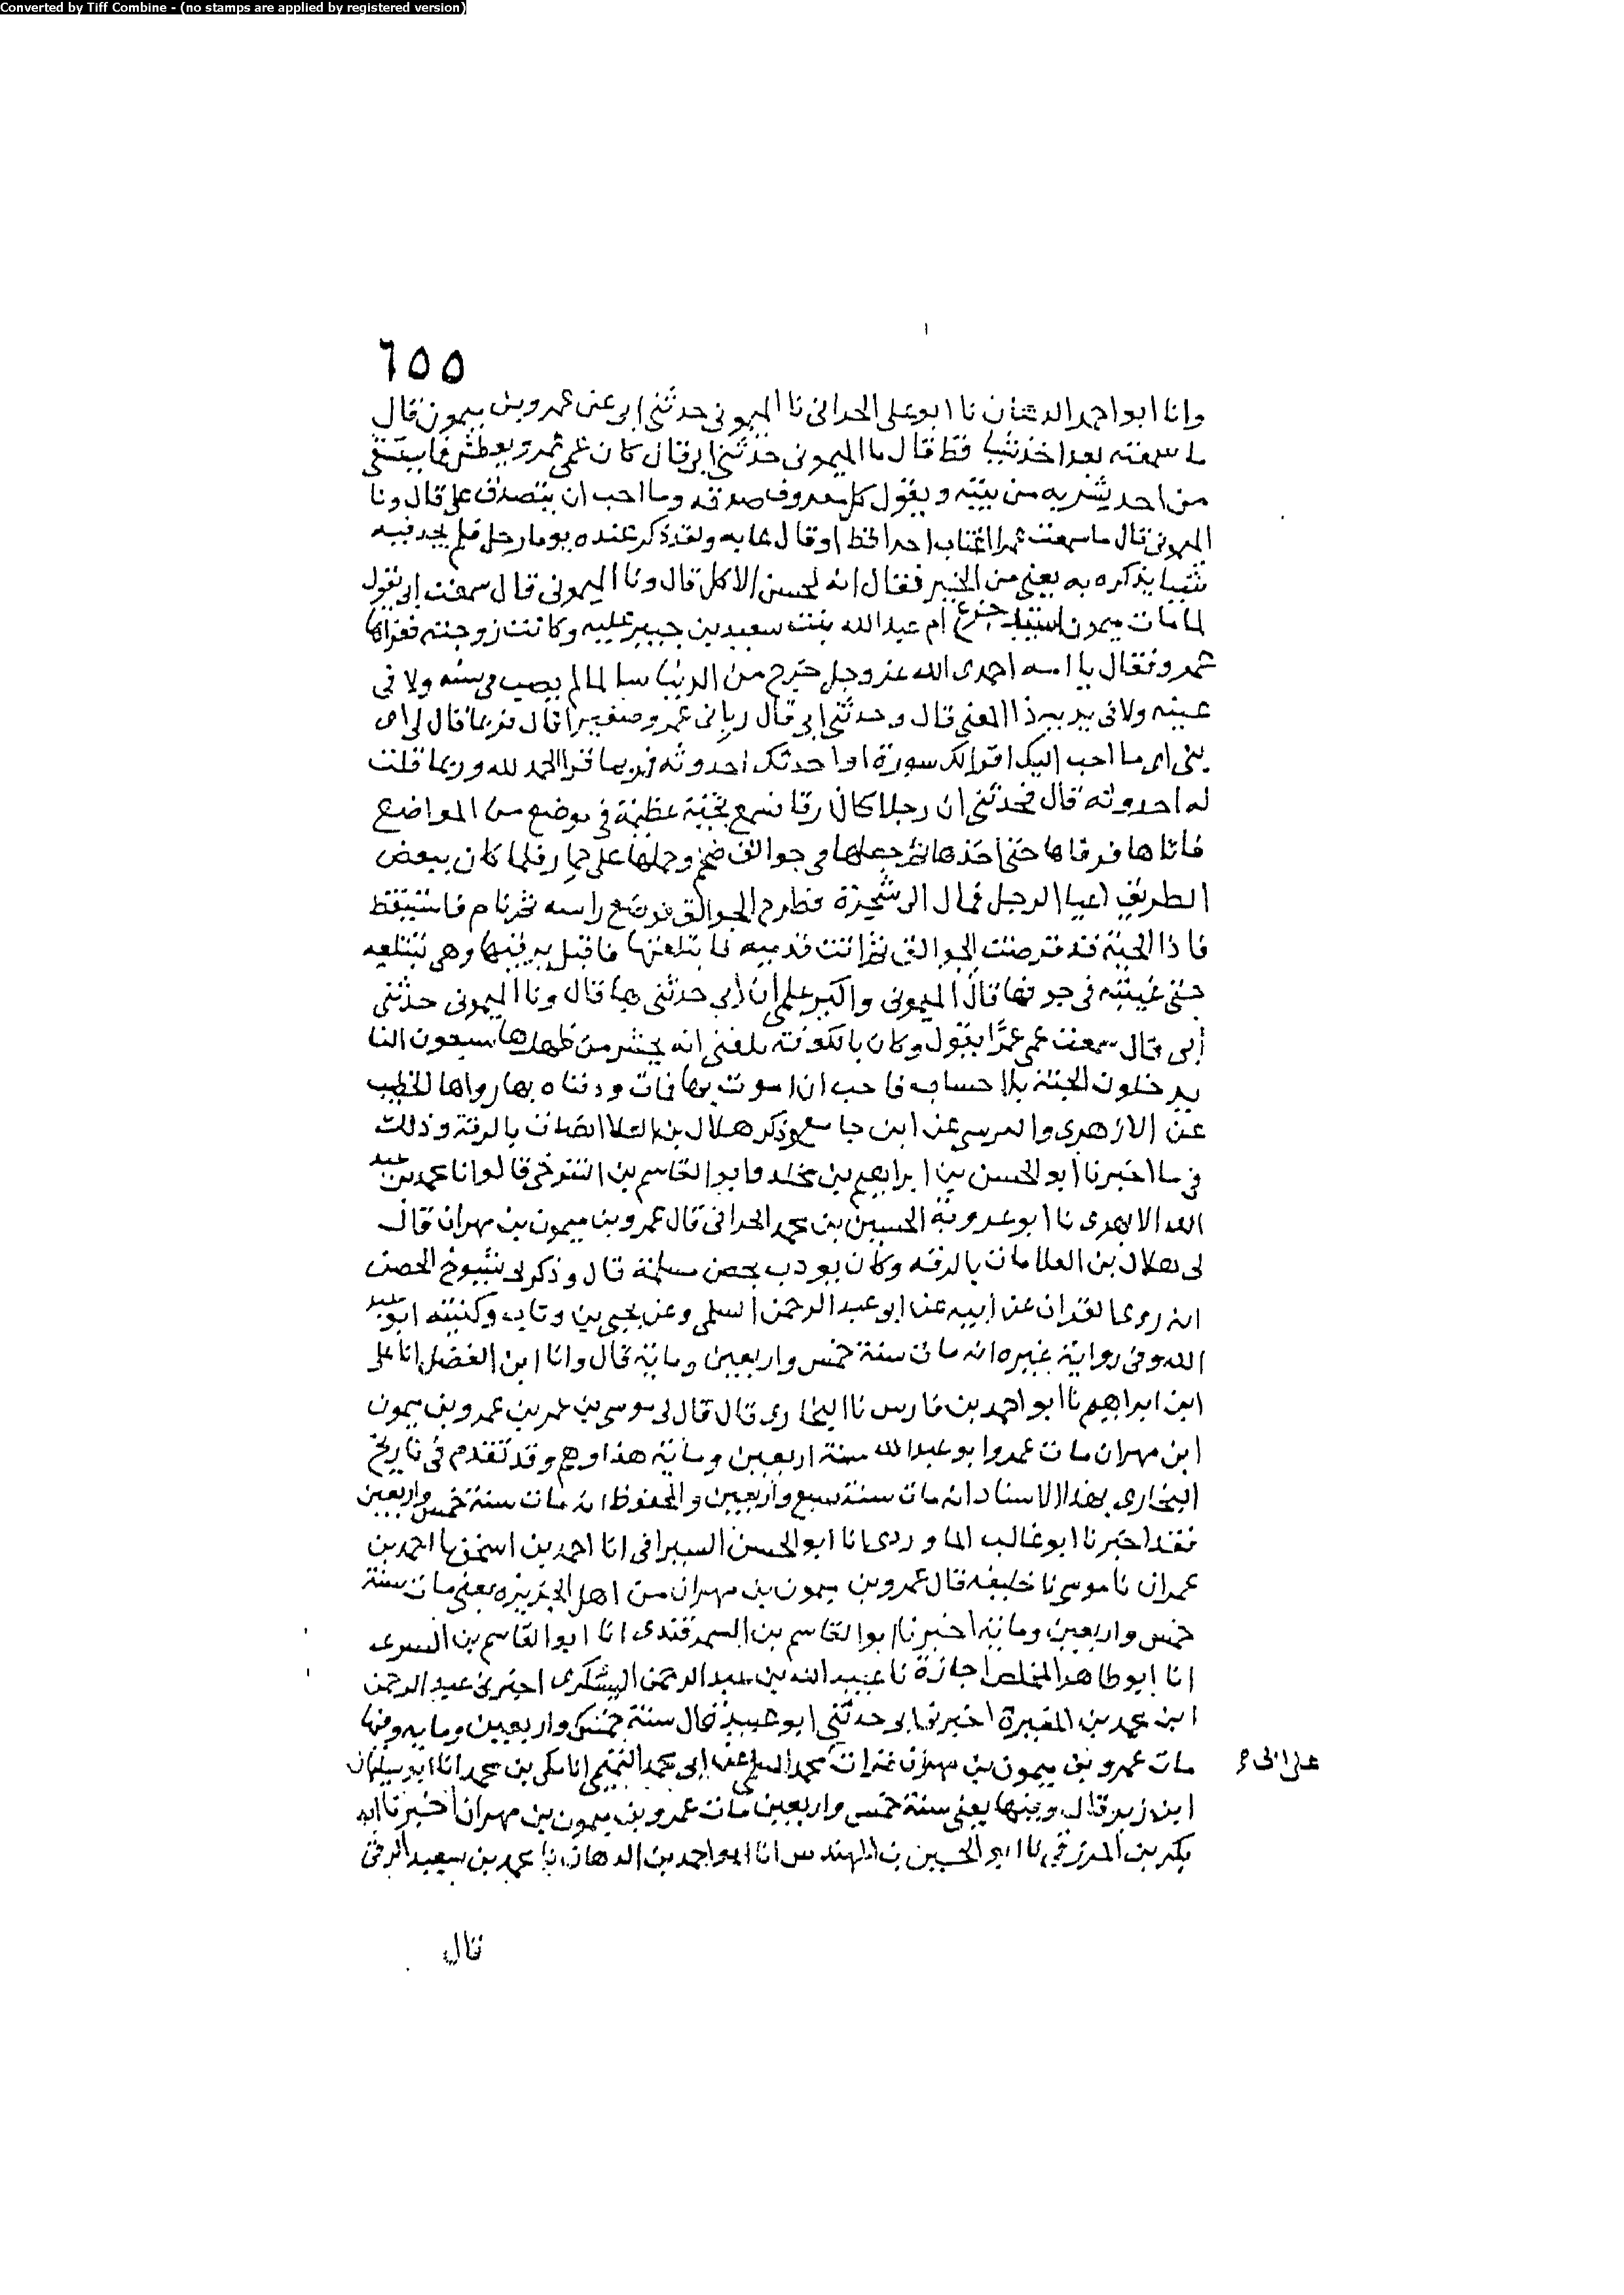 Converted by Tiff Combine - (no stamps are applied by registered version)
٦٥٥
وانا ابو احمد الدهان نا ابو على الحرانى نا الميمونى حدثنى ابى عن عمرو بن ميمون قال
ما سمعته قط قال نا الميمونى حدثنى ابى قال كان عمى عمرو يعطش فما يستسقى
من احد يشربه من بيته ويقول كل معروف صدقه وما احب ان يتصدق على قال ونا
الميمونى قال ما سمعت عمرا اغتاب احدا قط او قال عابه ولقد ذكر عنده يوما رجل فلم يجد فيه
شيا يذكره به يعنى من الخير فقال انه لحسن الاكل قال ونا الميمونى قال سمعت ابى يقول
لما مات ميمون اشتد جزع ام عبدالله بنت سعيد بن جبير عليه وكانت زوجته فعزاها
عمرو فقال يا امه احمدى الله عز وجل خرج من الدنيا سالما لم يصب فى سنه ولا فى
عينه ولا فى يد يريد ذا المعنى قال وحدثنى ابى قال ربانى عمرو صغيرا قال فربما قال لى اى
بنى اى ما احب اليك اقرا لك سورة او احدثك احدوثه فربما قرا الحمد لله وربما قلت
له احدوثه قال فحدثنى ان رجلا كان رقا سمع بحية عظيمة فى موضع من المواضع
فاتاها فرقاها حتى اخذها ثم جعلها فى جوالق ضخم وحملها على حمار فلما كان ببعض
الطريق اعيا الرجل فمال الى شجرة فطرح الجوالق فوضع راسه ثم نام فاستيقظ
فاذا الحية قد قرضت الجوالق ثم اتت قدميه فابتلعتها فاقبل يرقيها وهى تبتلعه
حتى غيبته فى جوفها قال الميمونى واكبر علمى ان ابى حدثنى بها قال ونا الميمونى حدثنى
أبى قال سمعت عمى عمرًا يقول وكان بالكوفة بلغنى انه يحشر من ظهرها سبعون الفا
يدخلون الجنة بلا حساب فاحب ان اموت بها فمات ودفناه بها رواها الخطيب
عن الازهرى والمرسى عن ابن جامع وذكر هلال بن العلا انه مات بالرقة وذلك
فى ما اخبرنا ابو الحسن بن ابراهيم بن مخلد وابو القاسم بن التنوخى قالوا نا محمد بن عبد
الله الابهرى نا ابو عروبة الحسين بن محمد الحرانى قال عمرو بن ميمون بن مهران قال
لى هلال بن العلا مات بالرقه وكان يودب بحصن مسلمة قال وذكر لى شيوخ الحصن
انه روى القران عن ابيه عن ابو عبد الرحمن السلمى وعن يحيى بن وثاب وكنيته ابو عبد
الله وفى رواية غيره انه مات سنة خمس واربعين ومائة قال وانا ابن الفضل انا على
ابن ابراهيم نا ابو احمد بن فارس نا البخارى قال قال لى موسى بن عمر بن عمرو بن ميمون
ابن مهران مات عمرو ابو عبدالله سنة اربعين ومائة هذا وهم وقد تقدم فى تاريخ
البخارى بهذا الاسناد انه مات سنة سبع واربعين والمحفوظ انه مات سنة خمس واربعين
فقد اخبرنا ابو غالب الماوردى انا ابو الحسن السيرافى انا احمد بن اسحق نا احمد بن
عمران نا موسى نا خليفه قال عمرو بن ميمون بن مهران من اهل الجزيره يعنى مات سنة
خمس واربعين ومائة اخبرنا ابو القاسم بن السمرقندى انا ابو القاسم بن البسرى
انا ابو طاهر المخلص اجازة نا عبيد الله بن عبد الرحمن اليشكرى اخبرنى عبد الرحمن
ابن محمد بن المغيرة اخبرنى ابى حدثنى ابو عبيد قال سنة خمس واربعين ومايه وفيها
مات عمرو بن ميمون بن مهران قرات على ابى محمد السلمى عن ابى محمد التميمى انا مكى بن محمد انا ابو سليمان
ابن زبر قال وفيها يعنى سنة خمس واربعين مات عمرو بن ميمون بن مهران اخبرنا ابو
بكر بن المزرفى نا ابو الحسين بن المهندس انا ابو احمد بن الدهان نا محمد بن سعيد الرقى
قال